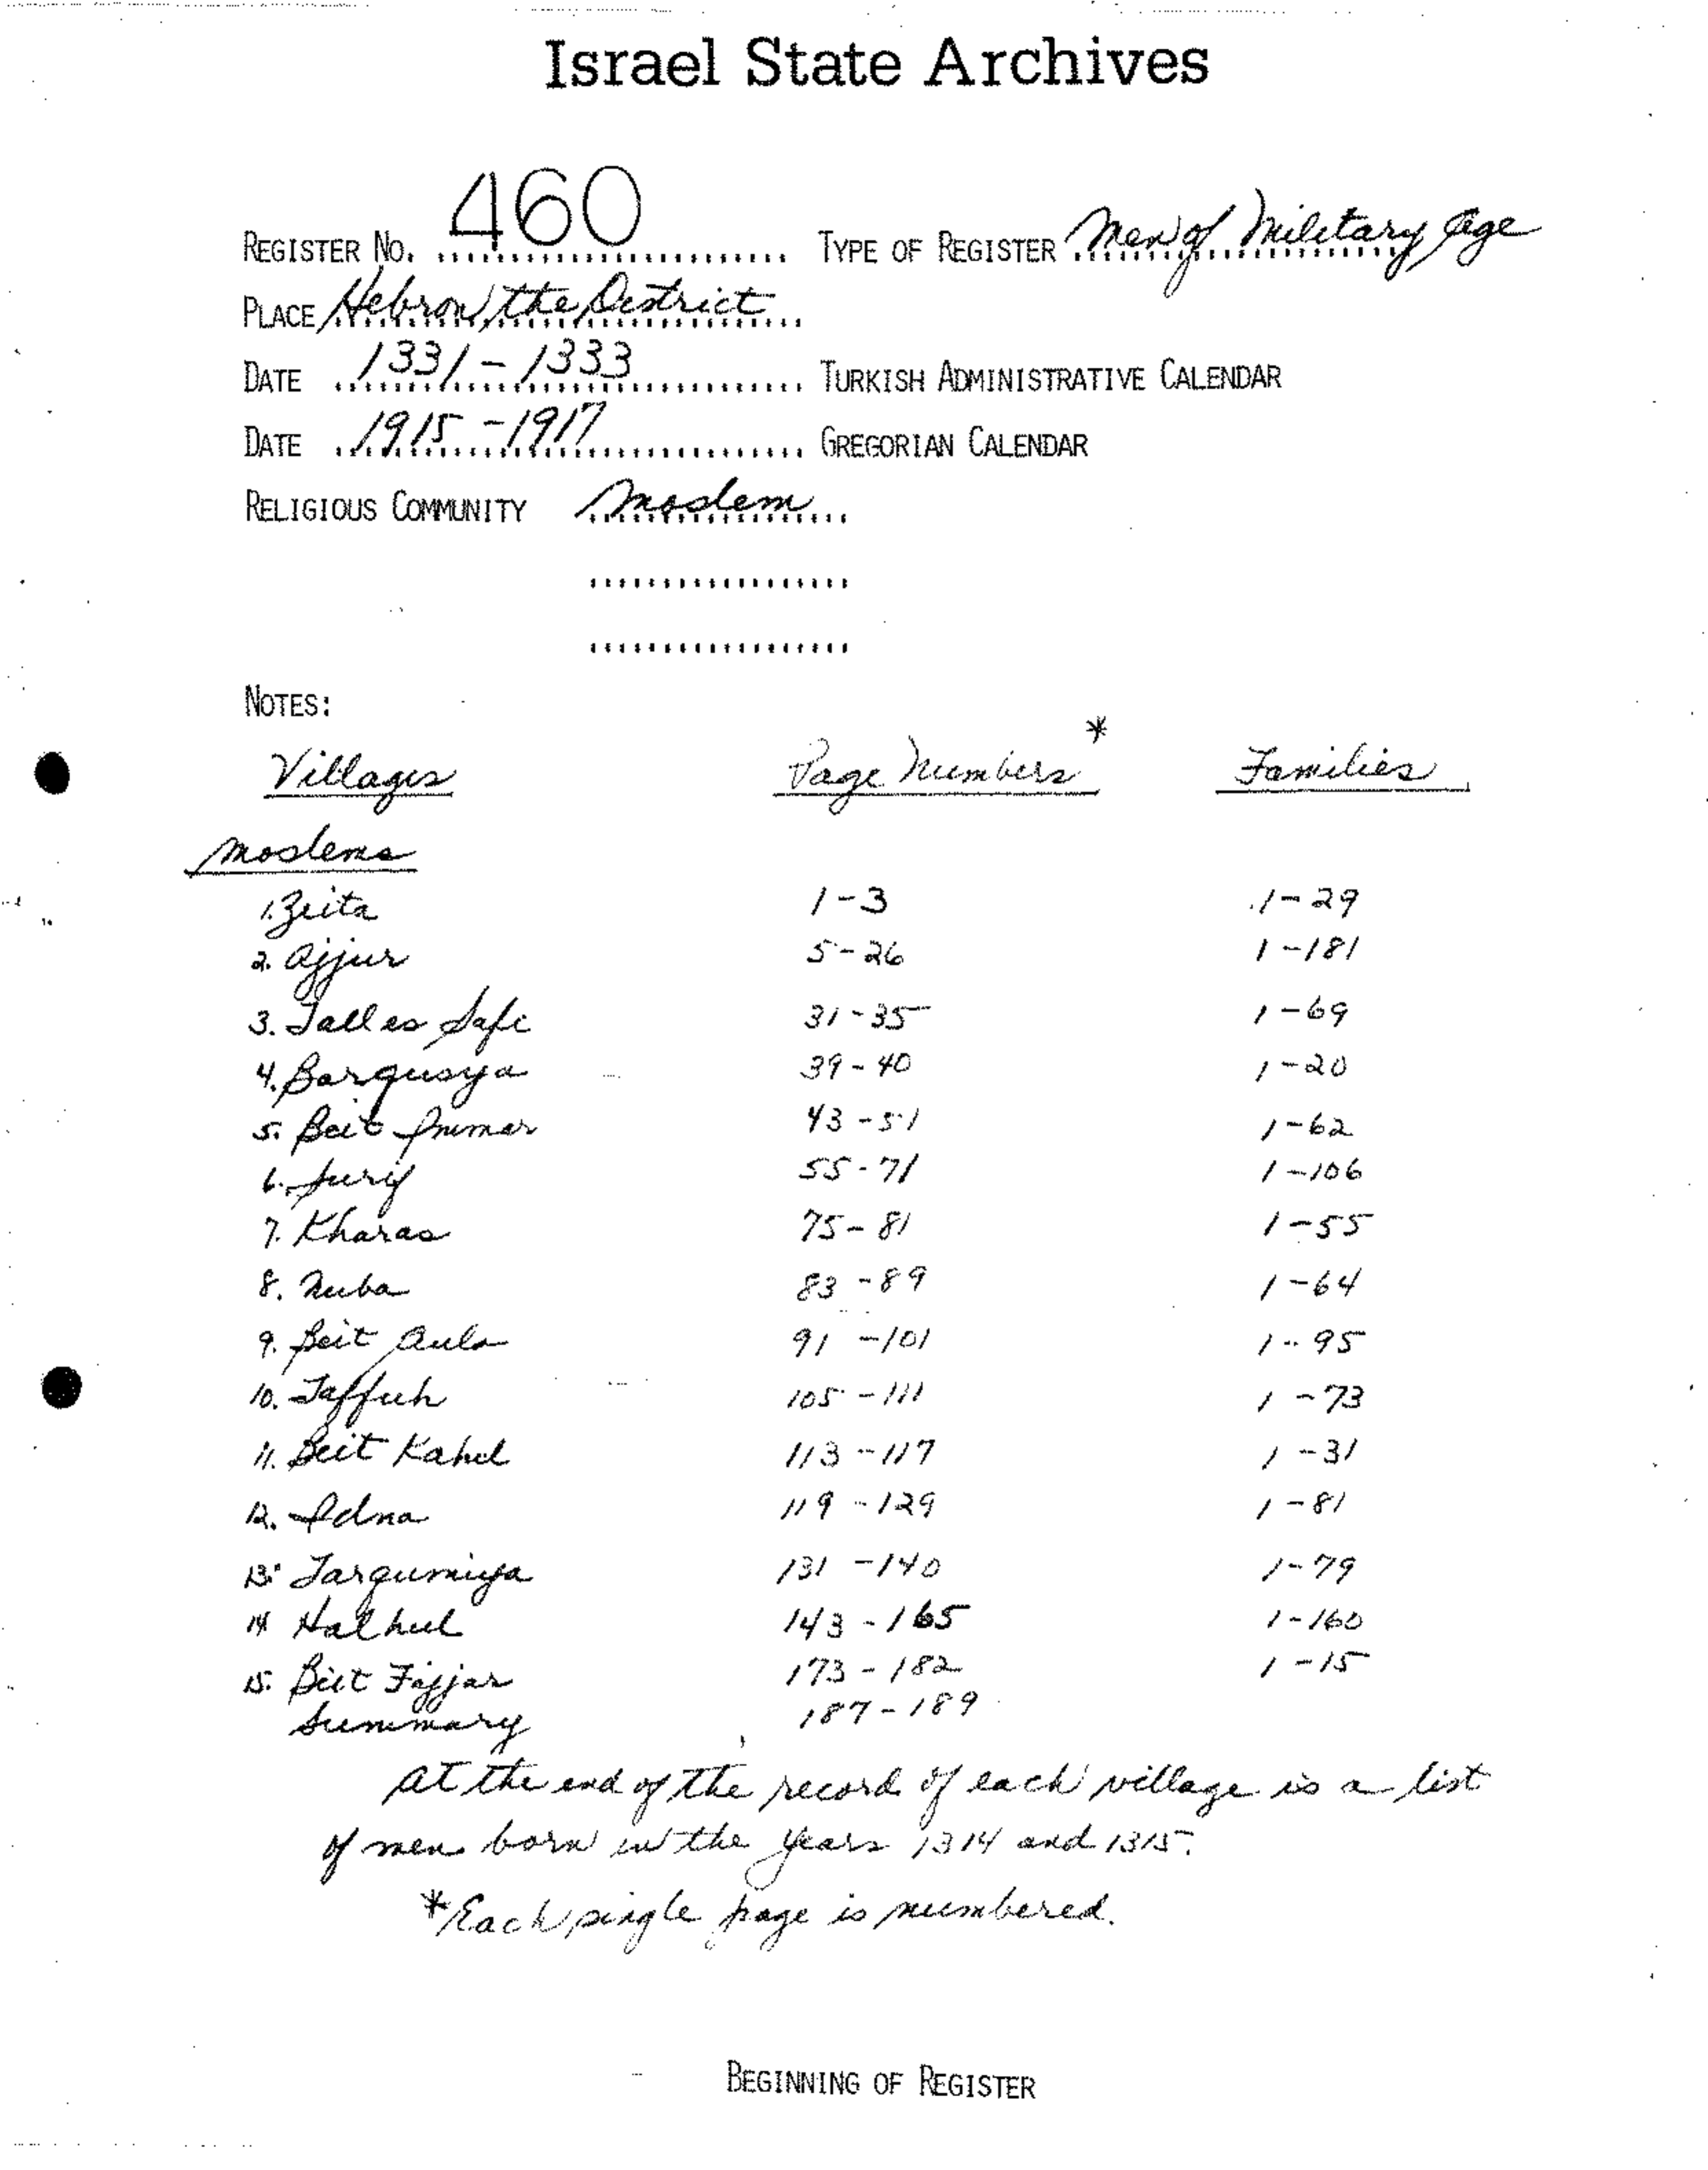 Israel State Archives
REGISTER NO. 460 TYPE OF REGISTER Men of Military Age
PLACE Hebron, the District
DATE 1331-1333 TURKISH ADMINISTRATIVE CALENDAR
DATE 1915-1917 GREGORIAN CALENDAR
RELIGIOUS COMMUNITY Moslem
NOTES:
Villages Page Numbers * Families
Moslems
1. Zeita 1-3 1-29
2. Ajjur 5-26 1-181
3. Tall es Safi 31-35 1-69
4. Barqusya 39-40 1-20
5. Beit Ummar 43-51 1-62
6. Surif 55-71 1-106
7. Kharas 75-81 1-55
8. Nuba 83-89 1-64
9. Beit Aula 91-101 1-95
10. Taffuh 105-111 1-73
11. Beit Kahil 113-117 1-31
12. Idna 119-129 1-81
13. Tarqumiya 131-140 1-79
14 Halhul 143-165 1-160
15. Beit Fajjar 173-182 1-15
Summary 187-189
At the end of the record of each village is a list
of men born in the years 1314 and 1315.
*Each single page is numbered.
BEGINNING OF REGISTER